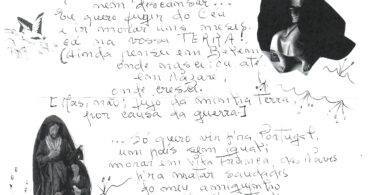 nem descansar...
Eu quero fugir do Céu
e ir morar uns meses
cá na vossa TERRA!
(ainda pensei em Belém
onde nasci ou até
em Nazaré
onde cresci.
[Mas, não! fujo da minha Terra
por causa da guerra]
... Só quero vir p'ra Portugal,
um país sem igual!
morar em Vila Franca, de
p'ra matar saudades
do meu